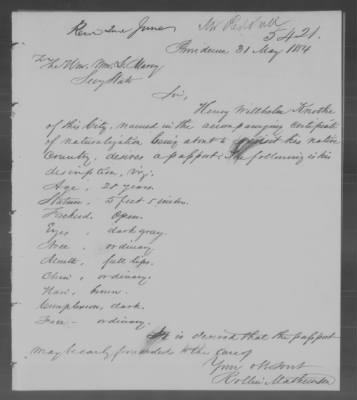 Recd 2nd June
5421.
Providence 31 May 1854
To The Hon. Wm. L. Marcy
Secy State
Sir,
Henry Willholm Knothe
of this City, named in the accompanying certificate
of naturalization being about to revisit his native
Country, desires a passport: The following is his
description, viz.
Age, 28 years.
Stature, 5 feet 5 inches.
Forehead, open.
Eyes, dark gray.
Nose, ordinary
Mouth, full lips.
Chin, ordinary.
Hair, brown.
Complexion, dark.
Face - ordinary.
It is desired that the passport
may be early forwarded to the care of
Your Ob Servt
Rollin Mathewson